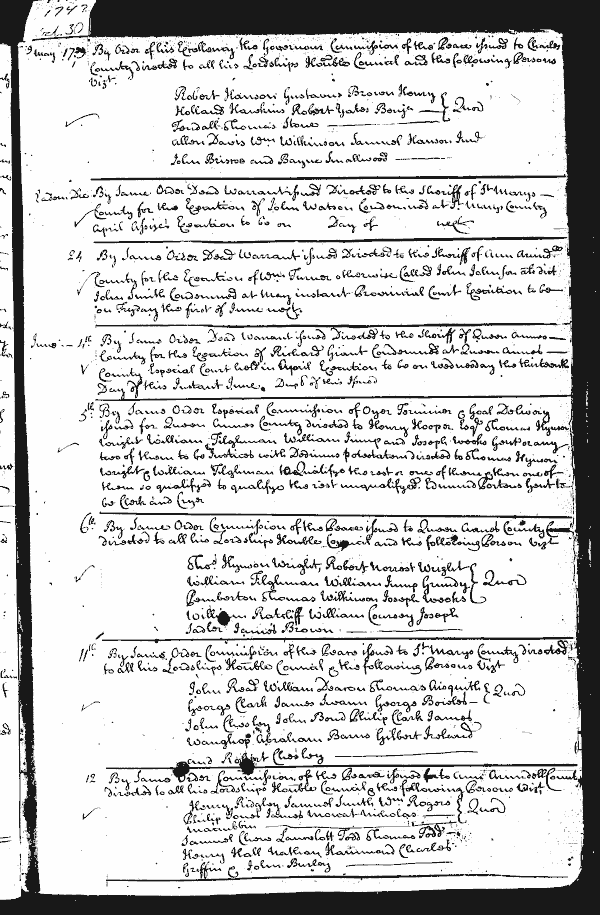 1742
9 May 1739 By Order of his Excellency the Governour Commission of the Peace issued to Charles
County directed to all his Lordships Honble Council and the following Persons
Vizt.
Robert Hanson Gustavus Brown Henry
Holland Hawkins Robert Yates Benja
Fendall Thomas Stone
Quor
Allen Davis Wm Wilkinson Samuel Hanson Junr
John Briscoe and Bayne Smallwood
Eadem Die By Same Order Dead Warrant issued Directed to the Sheriff of St Marys
County for the Execution of John Watson Condemned at St Marys County
April Assizes Execution to be on Day of next
24 By Same Order Dead Warrant issued Directed to the Sheriff of Ann Arund
County for the Execution of Wm Turner otherwise Called John Johnson als dict
John Smith Condemned at May instant Provincial Court Execution to be
on Fryday the first of June next.
June 4th By Same Order Dead Warrant issued Directed to the Sheriff of Queen Annes
County for the Execution of Richard Grant Condemned at Queen Annes
County Especial Court held in April Execution to be on Wednesday the thirteenth
Day of this Instant June. of this Issued
5th By Same Order Especial Commission of Oyer Terminer & Goal Delivery
issued for Queen Annes County directed to Henry Hooper Esqr Thomas Hynson
Wright William Tilghman William Jump and Joseph Weeks Gent or any
two of them to be Justices with Dedimus potestatem directed to Thomas Hynson
Wright & William Tilghman to Qualify the rest or one of them & then one of
them so qualifyed to qualifye the rest unqualifyed. Edmund Porteus Gent to
be Clerk and Cryer
6th By Same Order Commission of the Peace issued to Queen Annes County
directed to all his Lordships Honble Council and the following Person Vizt
Thos. Hynson Wright, Robert Norrest Wright
William Tilghman William Jump Grundy
Pemberton Thomas Wilkinson Joseph Weeks
Quor
William Ratcliff William Coursey Joseph
Sadler James Brown
11th By Same Order Commission of the Peace issued to St Marys County directed
to all his Lordships Honble Council & the following Persons Vizt
John Read William Deacon Thomas Aisquith
George Clark James Swann George Bowles
Quor
John Chesley John Bond Philip Clark James
Waughop Abraham Barns Gilbert Ireland
and Robert Chesley
12 By Same Order Commission of the Peace issued to Ann Arundell County
directed to all his Lordships Honble Council & the following Persons Vizt
Henry Ridgley Samuel Smith Wm Rogers
Philip Jones James Mowat Nicholas
Maccubbin
Quor
Samuel Chew Lancelott Todd Thomas Todd
Henry Hall Nathan Hammond Charles
Griffin & John Burley